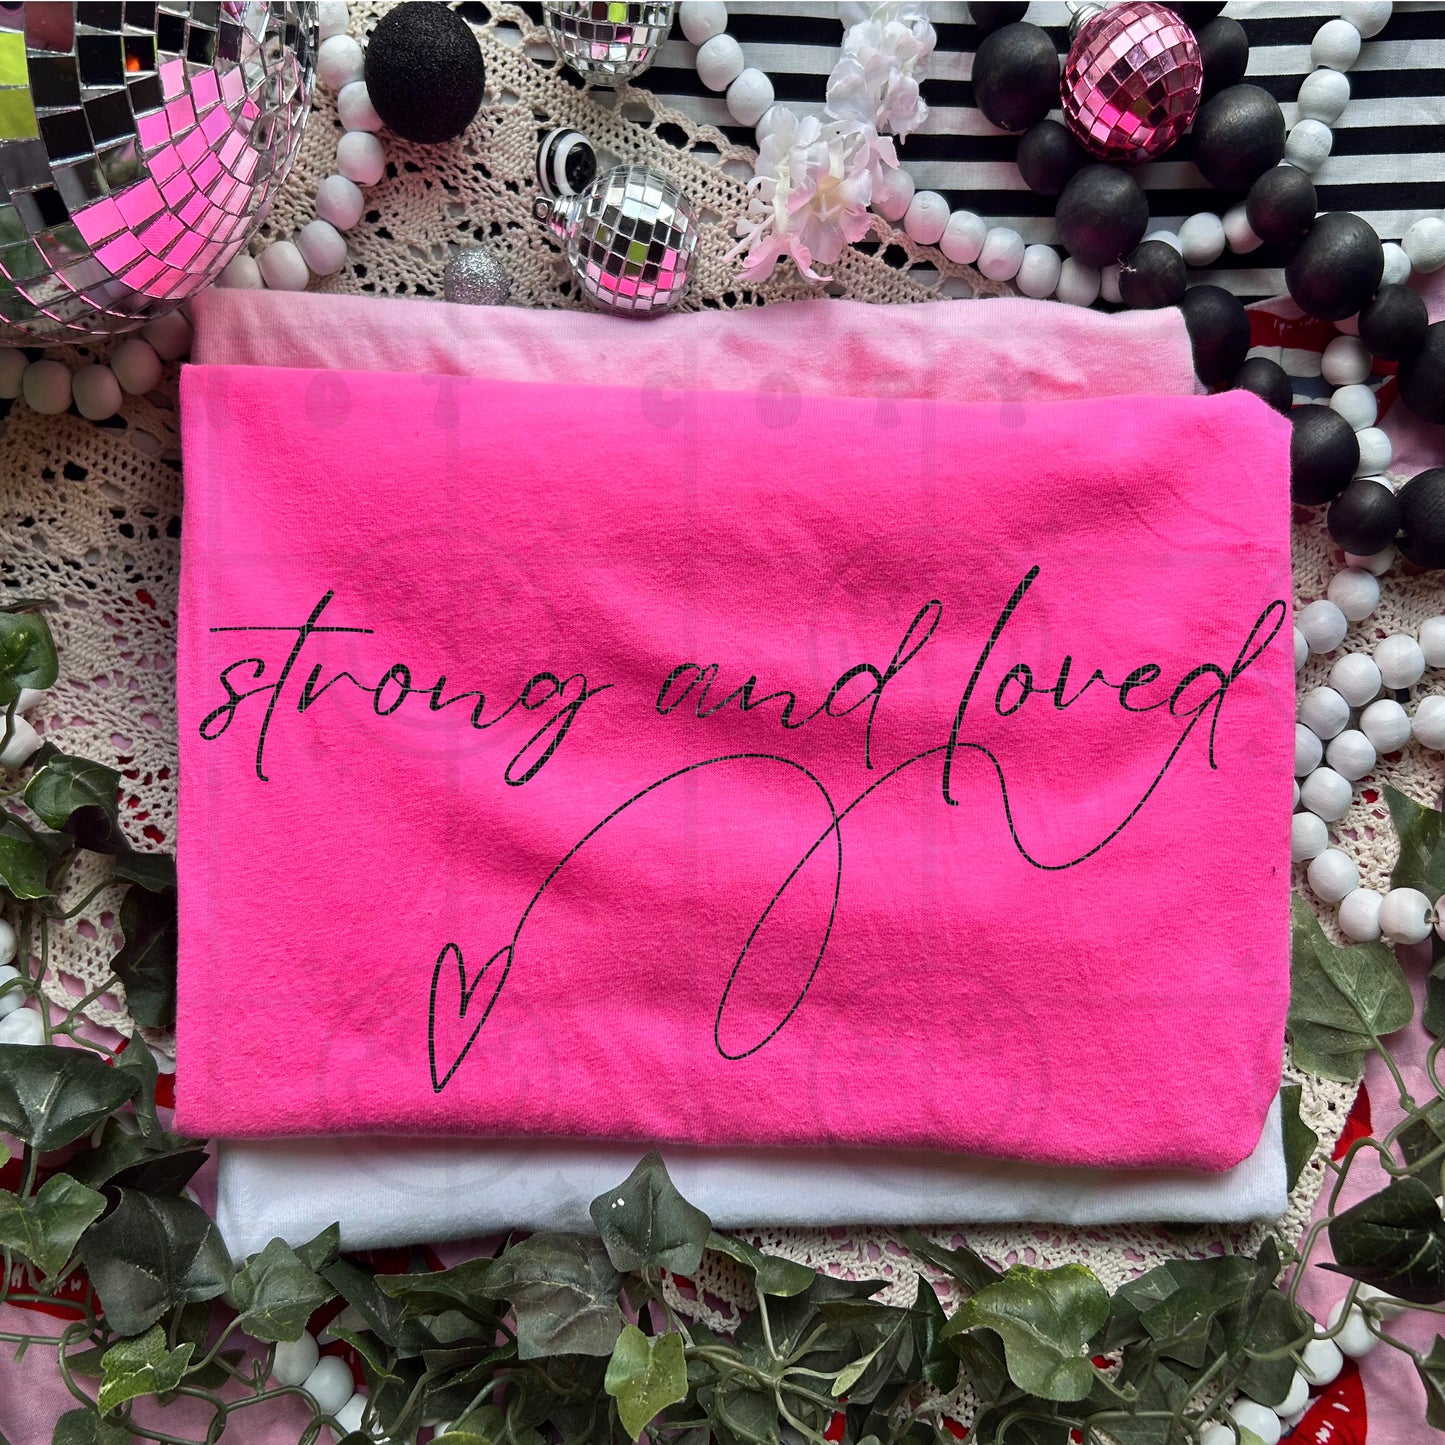 strong and loved